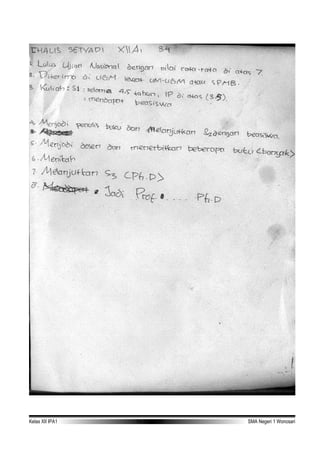 KHALIS SETYADI XIIA1 34
1. Lulus Ujian Nasional dengan nilai rata-rata di atas 7.
2. Diterima di UGM lewat UM-UGM atau SPMB.
3. Kuliah: S1 : selama 4,5 tahun, IP di atas (3.5).
: mendapat beasiswa
4. Menjadi penulis buku dan Melanjutkan S2 dengan beasiswa.
5. Menjadi dosen dan menerbitkan beberapa buku <banyak>
6. Menikah
7. Melanjutkan S3 <Ph.D>
8. Jadi Prof. .... Ph.D
Kelas XII IPA1 SMA Negeri 1 Wonosari